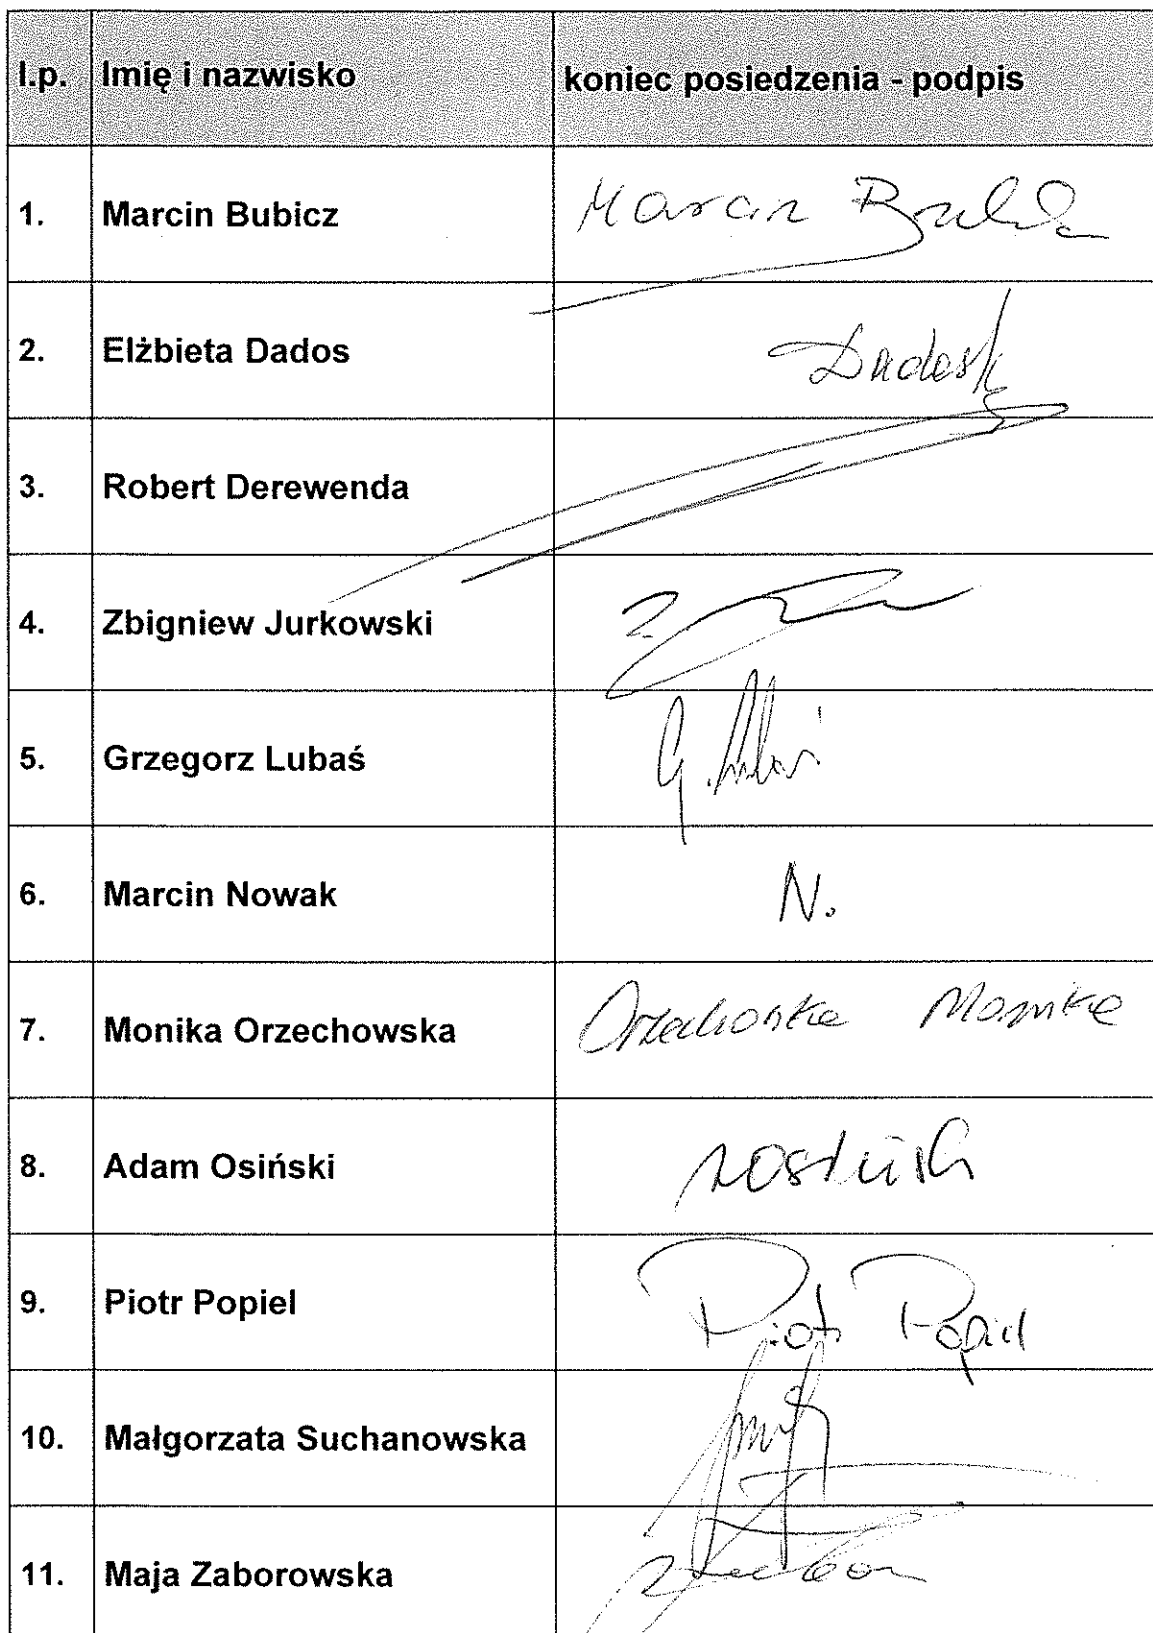 l.p. Imię i nazwisko koniec posiedzenia - podpis
1. Marcin Bubicz Marcin
2. Elżbieta Dados
3. Robert Derewenda
4. Zbigniew Jurkowski
5. Grzegorz Lubaś G.
6. Marcin Nowak N.
7. Monika Orzechowska Monika
8. Adam Osiński
9. Piotr Popiel Piotr Popiel
10. Małgorzata Suchanowska
11. Maja Zaborowska